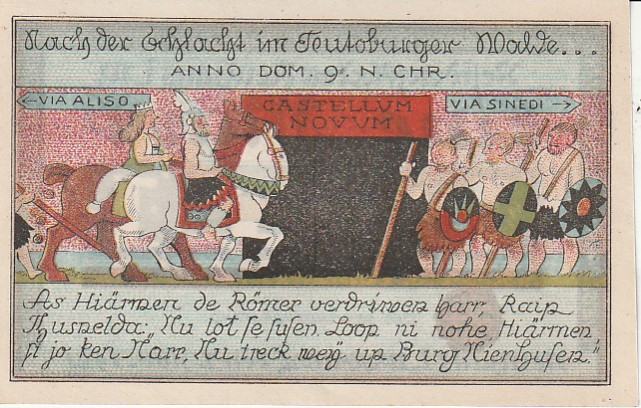 Nach der Schlacht im Teutoburger Walde...
ANNO DOM. 9. N. CHR.
VIA ALISO
CASTELLUM
NOVUM
VIA SINEDI
As Hiärmen de Römer verdriwen harr, Raip
Thusnelda: „Nu lot se susen. Loop ni nohe, Hiärmen,
si jo ken Narr, Nu treck wey up Burg Nienhusen."